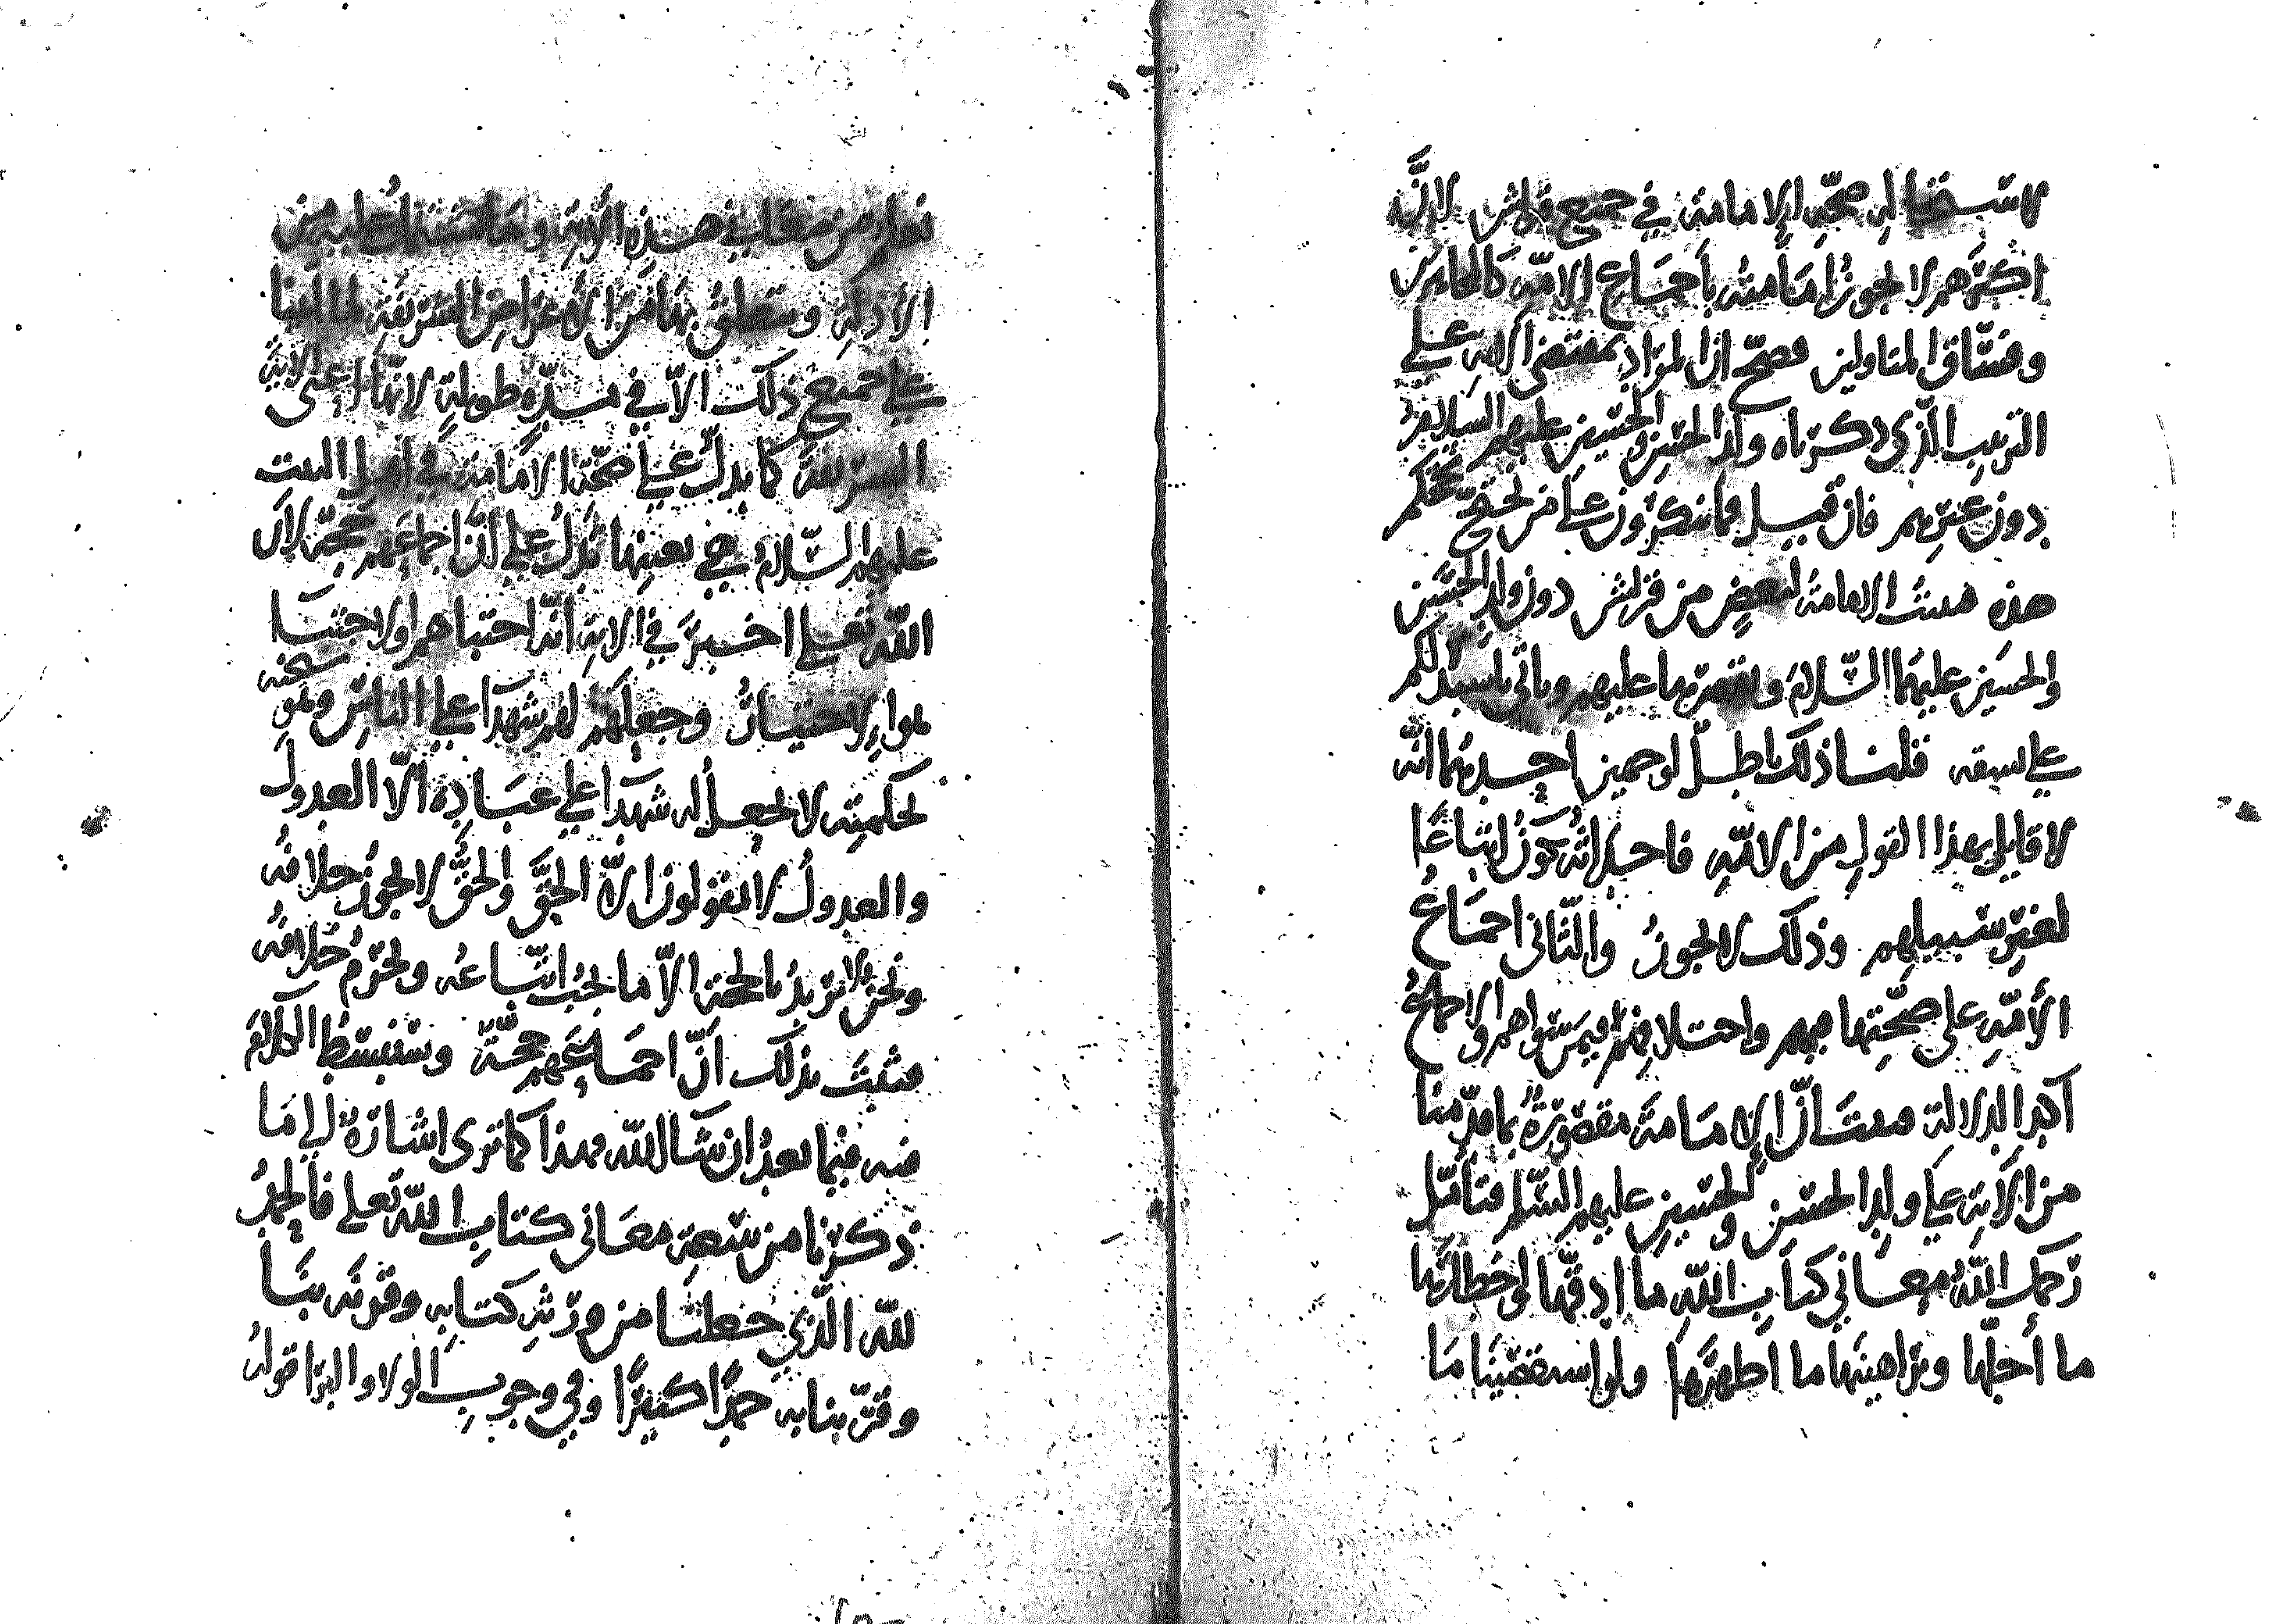 لاستحالة صحة الإمامة في جميع قريش لأنَّ
اكثرهم لا تجوز امامته باجماع الامة كالجائرين
وفسّاق المتاولين فصحّ ان المراد بمقتضى الآية على
الترتيب الّذي ذكرناه ولد الحسن والحسين عليهم السلام
دون غيرهم فان قيل فما تنكرون على من يحتج بحججكم
هذه فيثبت الامامة لبعض من قريش دون ولد الحسن
والحسين عليهما السّلام ويقصرها عليهم وياتي باستدلالكم
على نسقه قلنا ذلك باطل لوجهين احدهما انّه
لا قايل بهذا القول من الامّة فاحداثه يكون اتباعًا
لغير سبيلهم وذلك لا يجوز والثّاني اجماع
الأمّة على صحّتها فيهم واختلافهم فيمن سواهم والاجماع
آكد الدلالة فثبت أنّ الإمامة مقصورة بما قدّمنا
من الآية على ولد الحسن والحسين عليهم السّلم فتأمّل
رحمك اللّه معاني كتاب اللّه ما ادقّها واخطارها
ما أجلّها وبراهينها ما اظهرها ولو استقصينا ما
نعلم من معاني هذه الآية وما تشتمل عليه من
الأدلة وتتعلق بها من الأغراض الشريفة لما اتينا
على جميع ذلك الاّ في مدّة طويلة لانّها اعني الاية
الشريفة كما تدلّ على صحّة الامامة في اهل البيت
عليهم السّلام هي بعينها تدل على انّ اجماعهم حجّة لان
اللّه تعلى اخبر في الاية انّه اجتباهم والاجتبا
هو الاختيار وجعلهم شهدا على الناس وهو سبحنه
لحكمته لا يجعل له شهدا على عباده الاّ العدول
والعدول لا يقولون الاّ الحقَّ والحقُّ لا يجوز خلافه
ونحن لا نريد بالحجة الاّ ما يجب اتّباعه ويحرم خلافه
فثبت بذلك انّ اجماعهم حجّة وسنبسط الكلام
فيه فيما بعد ان شا اللّه وهذا كما ترى اشارة إلى ما
ذكرنا من سعة معاني كتاب اللّه تعلى فالحمد
للّه الّذي جعلنا من ورثة كتابه وقرنه بنا
وقرّبنا به حمدًا كثيرًا وفي وجوب الولا والبرا قوله